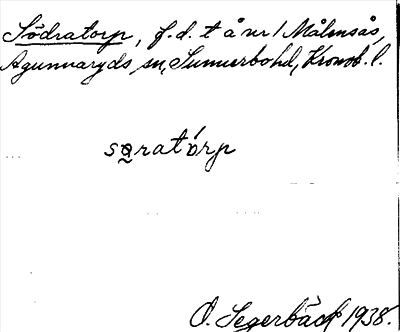 Södratorp, f.d. t å nr 1 Målensås,
Agunnaryds sn, Sunnerbo hd, Kronob. l.
sǫ̈ratórp
O. Segerbäck 1938.